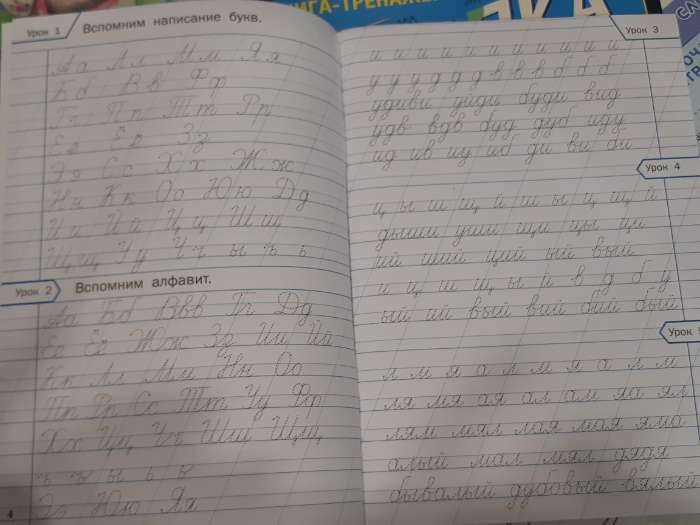 ИГА-ТРЕНАЖЕ
Урок 1
Вспомним написание букв.
Аа Лл Мм Яя
Бб Вв Фф
Гг Пп Тт Рр
Ее Ёё Зз
Ээ Сс Хх Жж
Нн Кк Оо Юю Дд
Ии Йй Цц Шш
Щщ Уу Чч ы ъ ь
Урок 2
Вспомним алфавит.
Аа Бб Ввв Гг Дд
Ее Ёё Жж Зз Ии Йй
Кк Лл Мм Нн Оо
Пп Рр Сс Тт Уу Фф
Хх Цц Чч Шш Щщ
ъ ы ь
Ээ Юю Яя
4
Урок 3
и и и и и и и и и и и
у у у д д д в в в б б б
удиви уйди буди вид
удв вдв буд дуб иду
ид ив иу иб ди ви би
Урок 4
ц ы ш щ й ш ы ц щ й
дыши уши щи цы ци
ий ший щий ый вый
и ц ш щ ы й в д б у
ый ий вый вий бий бый
Урок 5
л м я а л м я а л м
ля мя ая ал ам яа ял
лям мял мая яма
алый мал мял дядя
бывалый дубовый вялый